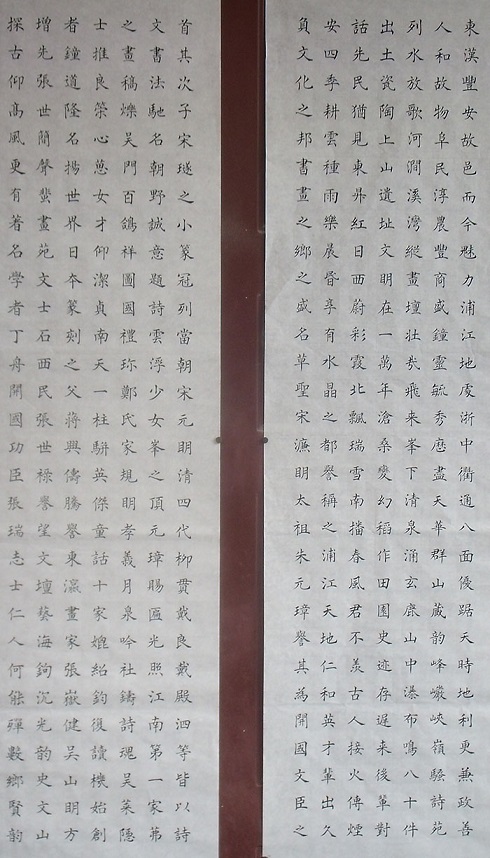 東漢豐安故邑而今魅力浦江地處浙中衢通八面優踞天時地利更兼政善
人和故物阜民淳農豐商盛鐘靈毓秀盡天華群山藏韵峰巉峽嶺騷詩苑
列水放歌河澗溪灣縱畫壇壮飛来峯下清泉涌玄鹿山中瀑布鳴八十件
出土瓷陶上山遺址文明在一萬年滄桑變幻稻作田園史迹存遲来後輩對
話先民猶見東昇紅日西蔚彩霞北飄瑞雪南播春風君不羨古人接火傳煙
安四季耕雲種雨樂晨昏享有水晶之都譽稱之浦江天地仁和英才輩出久
負文化之邦書畫之鄉之盛名草聖宋濂明太祖朱元璋譽其為開國文臣之
首其次子宋璲之小篆冠列當朝宋元明清四代柳貫戴良戴殿泗等皆以詩
文書法馳名朝野誠意題詩雲浮少女峯之頂元璋賜匾光照江南第一家茀
之畫稿爍吴門百鴿祥圖國禮珎鄭氏家規明孝義月泉吟社鑄詩魂吴莱隱
士推良筞心悳女才仰潔貞南天一柱駢英傑童話十家媲紹鈞復讀機始創
者鐘道隆名揚世界日夲篆刻之父蔣興儔騰譽東瀛畫家張嶽健吴山明方
增先張世簡聲蜚畫苑文士石西民張世禄譽望文壇藝海鉤沉光韵史文山
探古仰高風更有著名學者丁舟開國功臣張瑞志士仁人何能殫數鄉賢韵